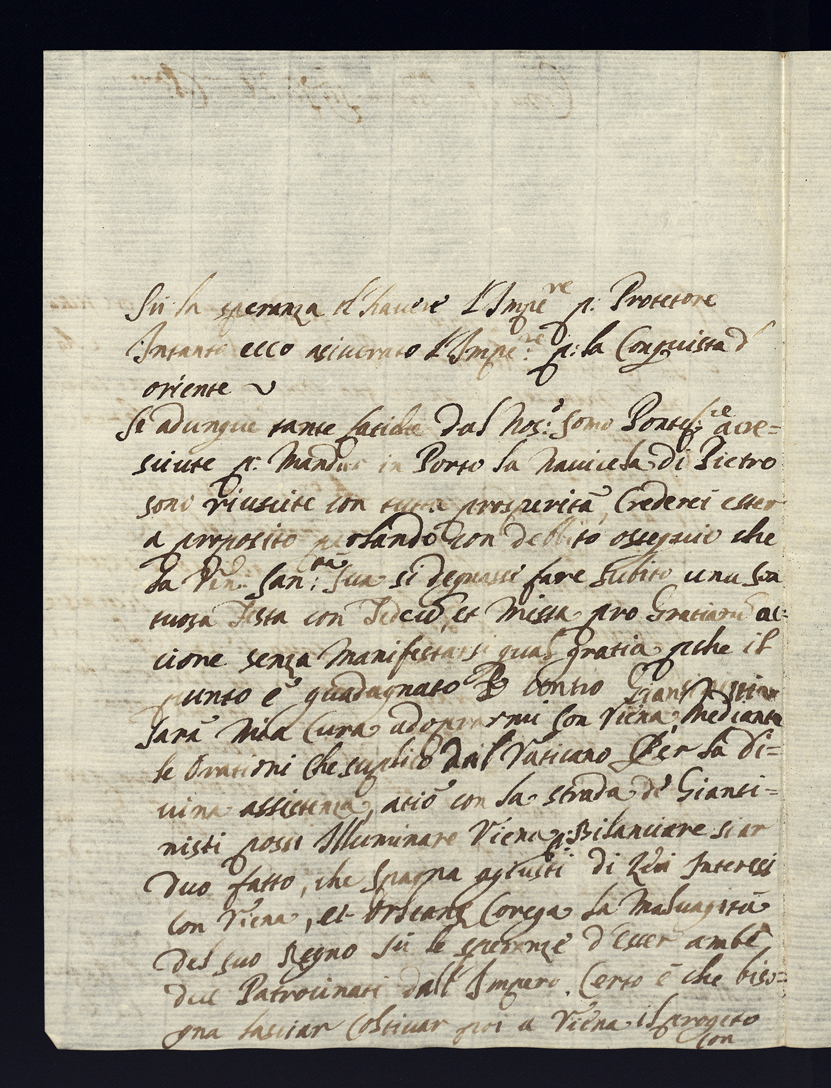 Sù la speranza d'havere l'Impe.re p: Protetore
Intanto ecco asicurato l'Impe.re p: la Conquista d'
oriente
Se adunque tante fatiche dal Nos: Somo Pontef.ce acre=
sciute p: Mandar in Porto la Navicela di Pietro
sono riuscite con tutta prosperità, Crederei esser
a proposito parlando con debbito ossequio che
la San:tà Sua si degnassi fare subito una son
tuosa Festa con Tedeum, et Missa pro Gratiarum ac=
cione senza Manifestarsi qual gratia pche il
punto è guadagnato contro
Sarà Mia Cura adoprarmi con Viena Mediante
le Orationi che suplico dal Vaticano Per la di=
vina assistenza, aciò con la strada de Gianse=
nisti possi Illuminare Viena p: Bilanciare si ar
duo fatto, che Spagna agiusti di Lei Interessi
con Viena, et Orleans Corega la Malvagità
del suo Regno Sù le speranze d'esser ambe
due Patrocinati dall'Impero. Certo è che biso=
gna lasciar Coltivar poi a Viena il progeto
con